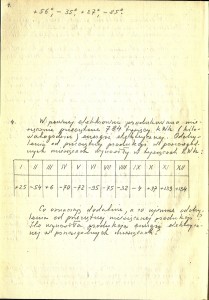 +56°, -35°, +27°, -45°.
9. W pewnej elektrowni produkowano mie-
sięcznie przeciętnie 784 tysięcy kWh (kilo-
watogodzin) energii elektrycznej. Odchy-
lenia od przeciętnej produkcji w poszczegól-
nych miesiącach wynosiły w tysiącach kWh:
I II III IV V VI VII VIII IX X XI XII
+25 -54 +6 -70 -72 -95 -75 -32 +133
Co oznaczają dodatnie, a co ujemne odchy-
lenia od przeciętnej miesięcznej produkcji?
Ile wynosiła produkcja energii elektrycz-
nej w poszczególnych miesiącach?